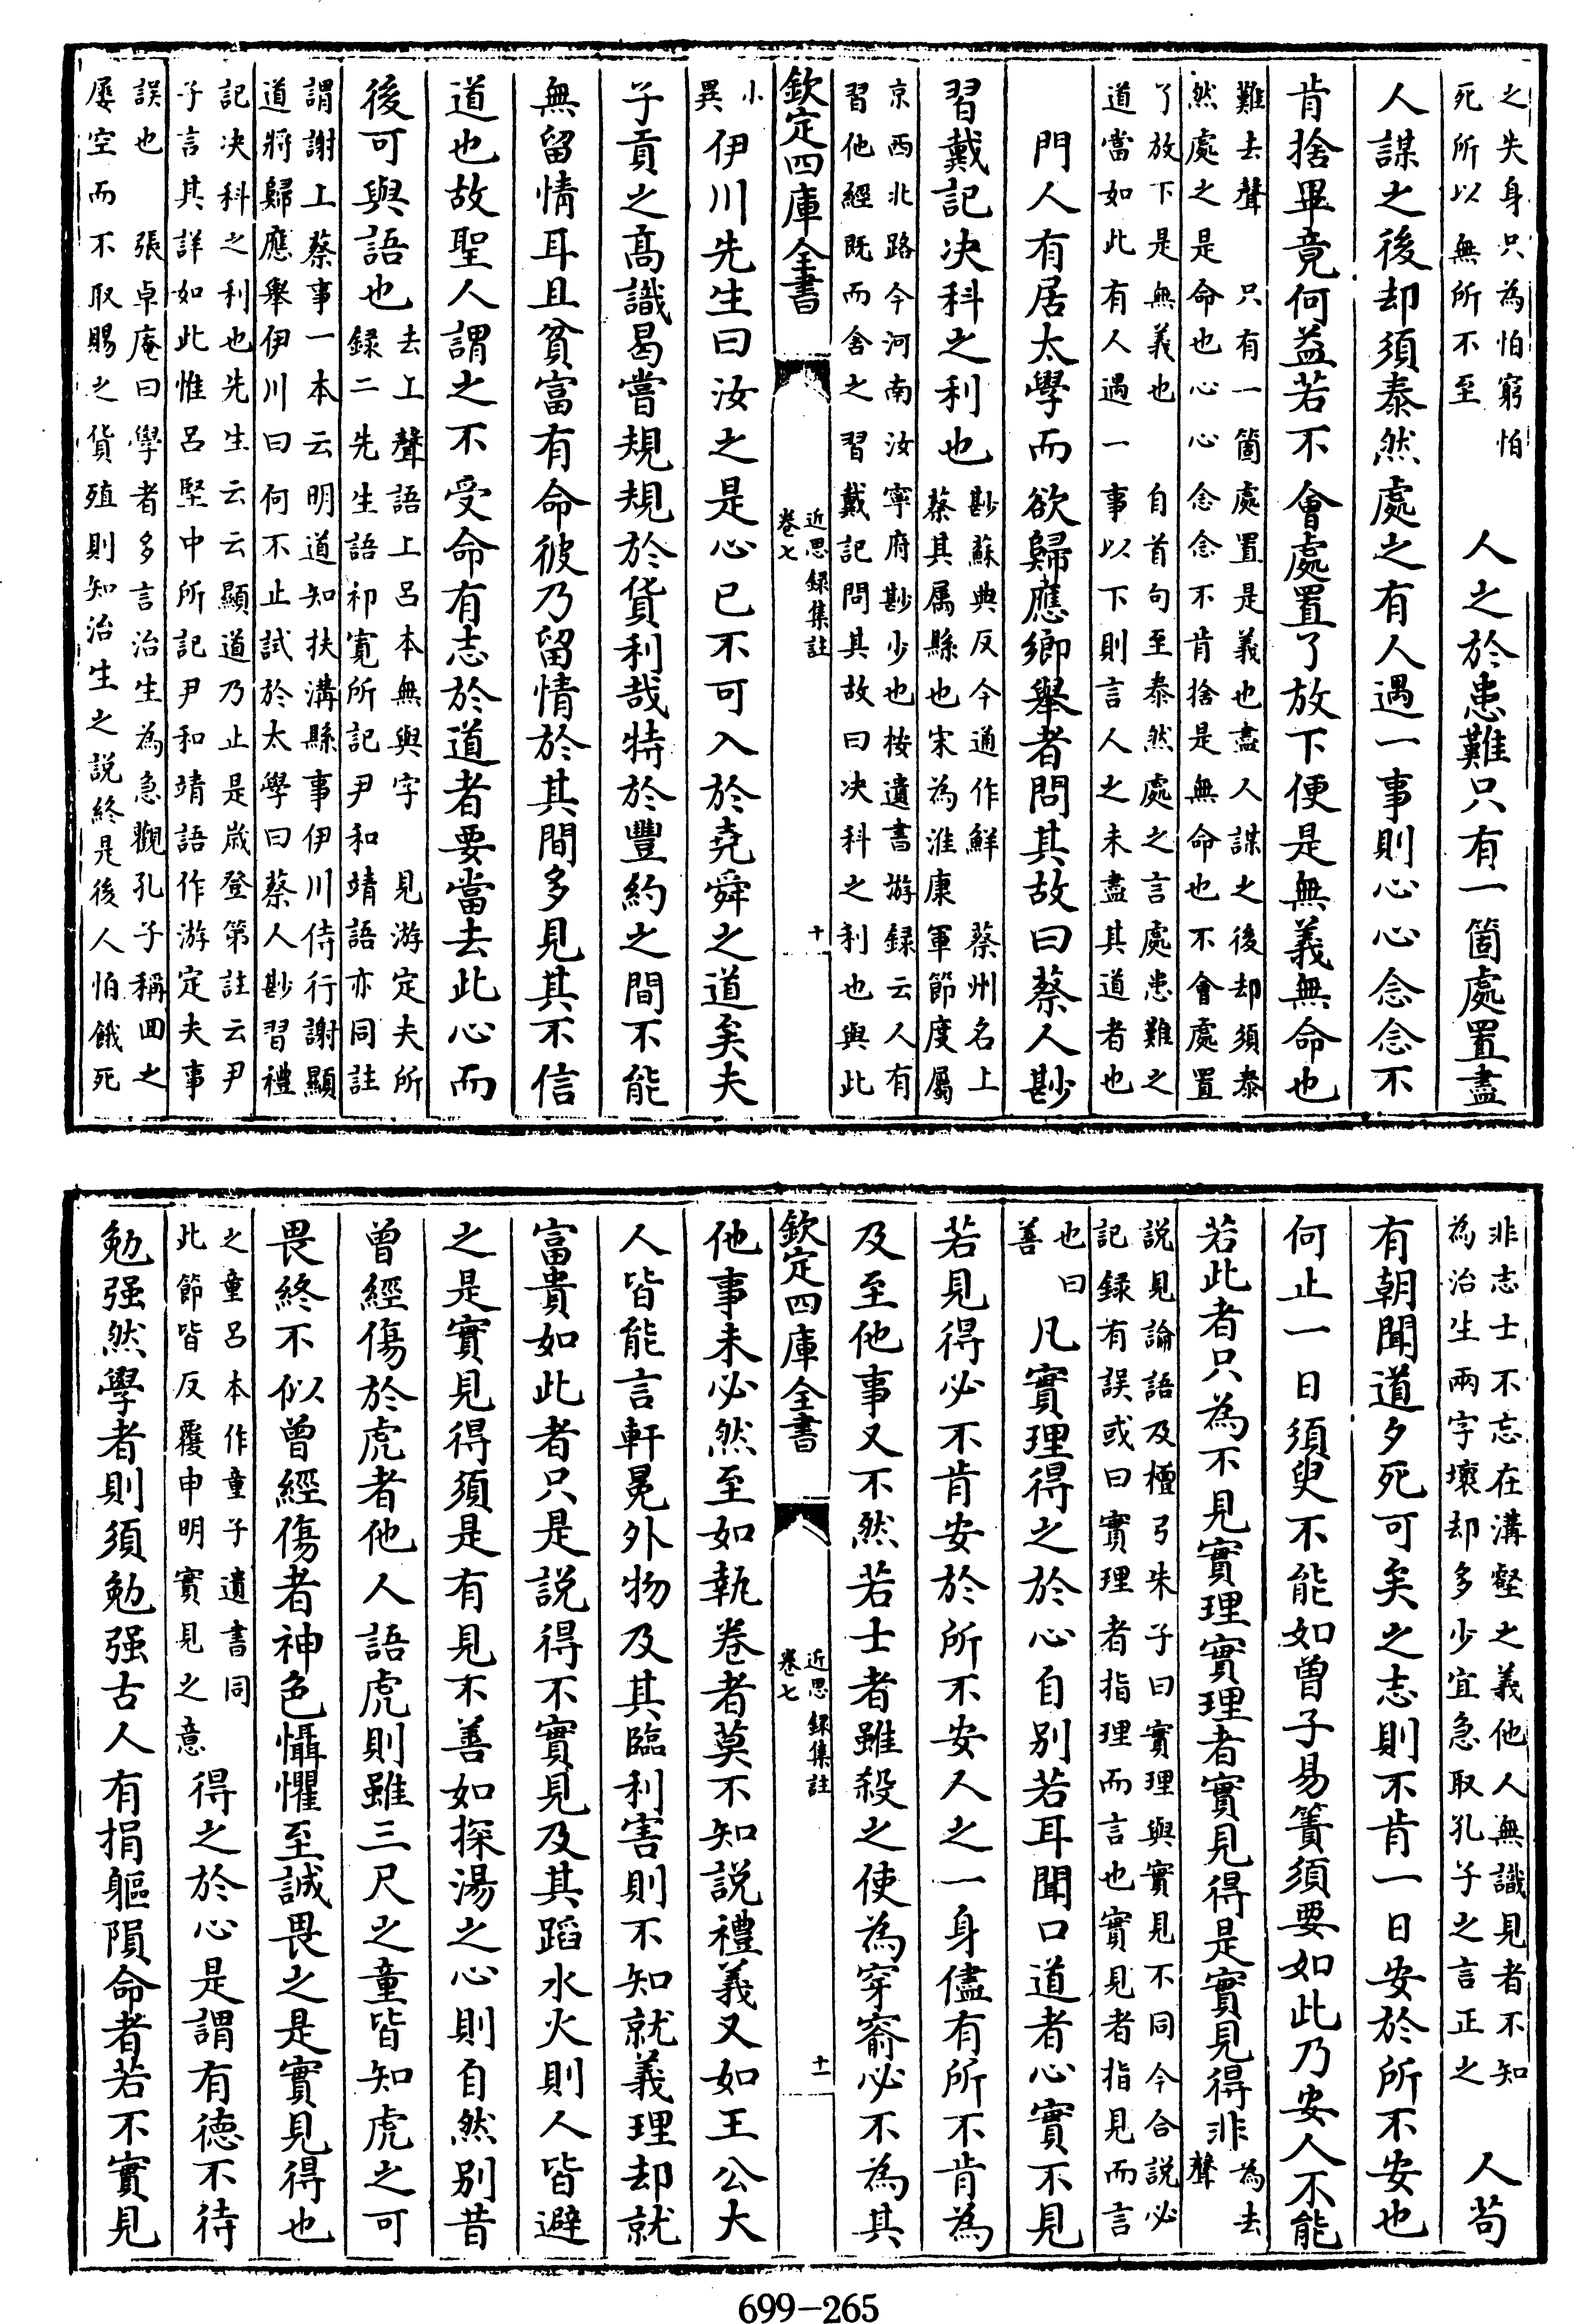 之失身只為怕窮怕
死所以無所不至
人之於患難只有一箇處置盡
人謀之後却須泰然處之有人遇一事則心心念念不
肯捨畢竟何益若不會處置了放下便是無義無命也
難去聲 只有一箇處置是義也盡人謀之後却須泰
然處之是命也心心念念不肯捨是無命也不會處置
了放下是無義也 自首句至泰然處之言處患難之
道當如此有人遇一事以下則言人之未盡其道者也
門人有居太學而欲歸應鄉舉者問其故曰蔡人尠
習戴記决科之利也
尠蘇典反今通作鮮 蔡州名上
蔡其属縣也宋為淮康軍節度屬
京西北路今河南汝寧府尠少也按遺書游録云人有
習他經既而舍之習戴記問其故曰决科之利也與此
欽定四庫全書
近思録集註
卷七
十
小
異
伊川先生曰汝之是心已不可入於堯舜之道矣夫
子貢之髙識曷嘗規規於貨利哉特於豐約之間不能
無留情耳且貧富有命彼乃留情於其間多見其不信
道也故聖人謂之不受命有志於道者要當去此心而
後可與語也
去上聲語上吕本無與字 見游定夫所
録二先生語祁寛所記尹和靖語亦同註
謂謝上蔡事一本云明道知扶溝縣事伊川侍行謝顯
道將歸應舉伊川曰何不止試於太學曰蔡人尠習禮
記决科之利也先生云云顯道乃止是嵗登第註云尹
子言其詳如此惟呂堅中所記尹和靖語作游定夫事
誤也 張卓庵曰學者多言治生為急觀孔子稱回之
屢空而不取賜之貨殖則知治生之説終是後人怕餓死
非志士不忘在溝壑之義他人無識見者不知
為治生兩字壞却多少宜急取孔子之言正之
人苟
有朝聞道夕死可矣之志則不肯一日安於所不安也
何止一日須臾不能如曾子易簀須要如此乃安人不能
若此者只為不見實理實理者實見得是實見得非
為去
聲
説見論語及檀弓朱子曰實理與實見不同今合説必
記録有誤或曰實理者指理而言也實見者指見而言
也曰
善
凡實理得之於心自别若耳聞口道者心實不見
若見得必不肯安於所不安人之一身儘有所不肯為
及至他事又不然若士者雖殺之使為穿窬必不為其
欽定四庫全書
近思録集註
卷七
十一
他事未必然至如執卷者莫不知説禮義又如王公大
人皆能言軒冕外物及其臨利害則不知就義理却就
富貴如此者只是説得不實見及其蹈水火則人皆避
之是實見得須是有見不善如探湯之心則自然别昔
曾經傷於虎者他人語虎則雖三尺之童皆知虎之可
畏終不似曾經傷者神色懾懼至誠畏之是實見得也
之童呂本作童子遺書同
此節皆反覆申明實見之意
得之於心是謂有德不待
勉强然學者則須勉强古人有捐軀隕命者若不實見
699-265